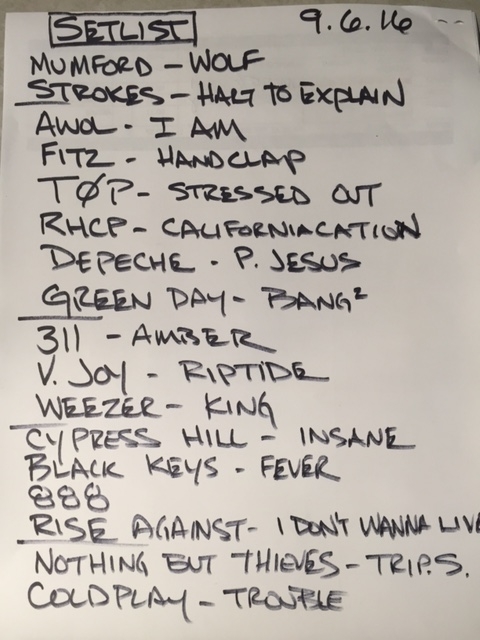 SETLIST 9.6.16
MUMFORD - WOLF
STROKES - HART TO EXPLAIN
AWOL - I AM
FITZ - HANDCLAP
TØP - STRESSED OUT
RHCP - CALIFORNIACATION
DEPECHE - P. JESUS
GREEN DAY - BANG²
311 - AMBER
V. JOY - RIPTIDE
WEEZER - KING
CYPRESS HILL - INSANE
BLACK KEYS - FEVER
888
RISE AGAINST - I DON'T WANNA LIVE
NOTHING BUT THIEVES - TRIP.S.
COLDPLAY - TROUBLE